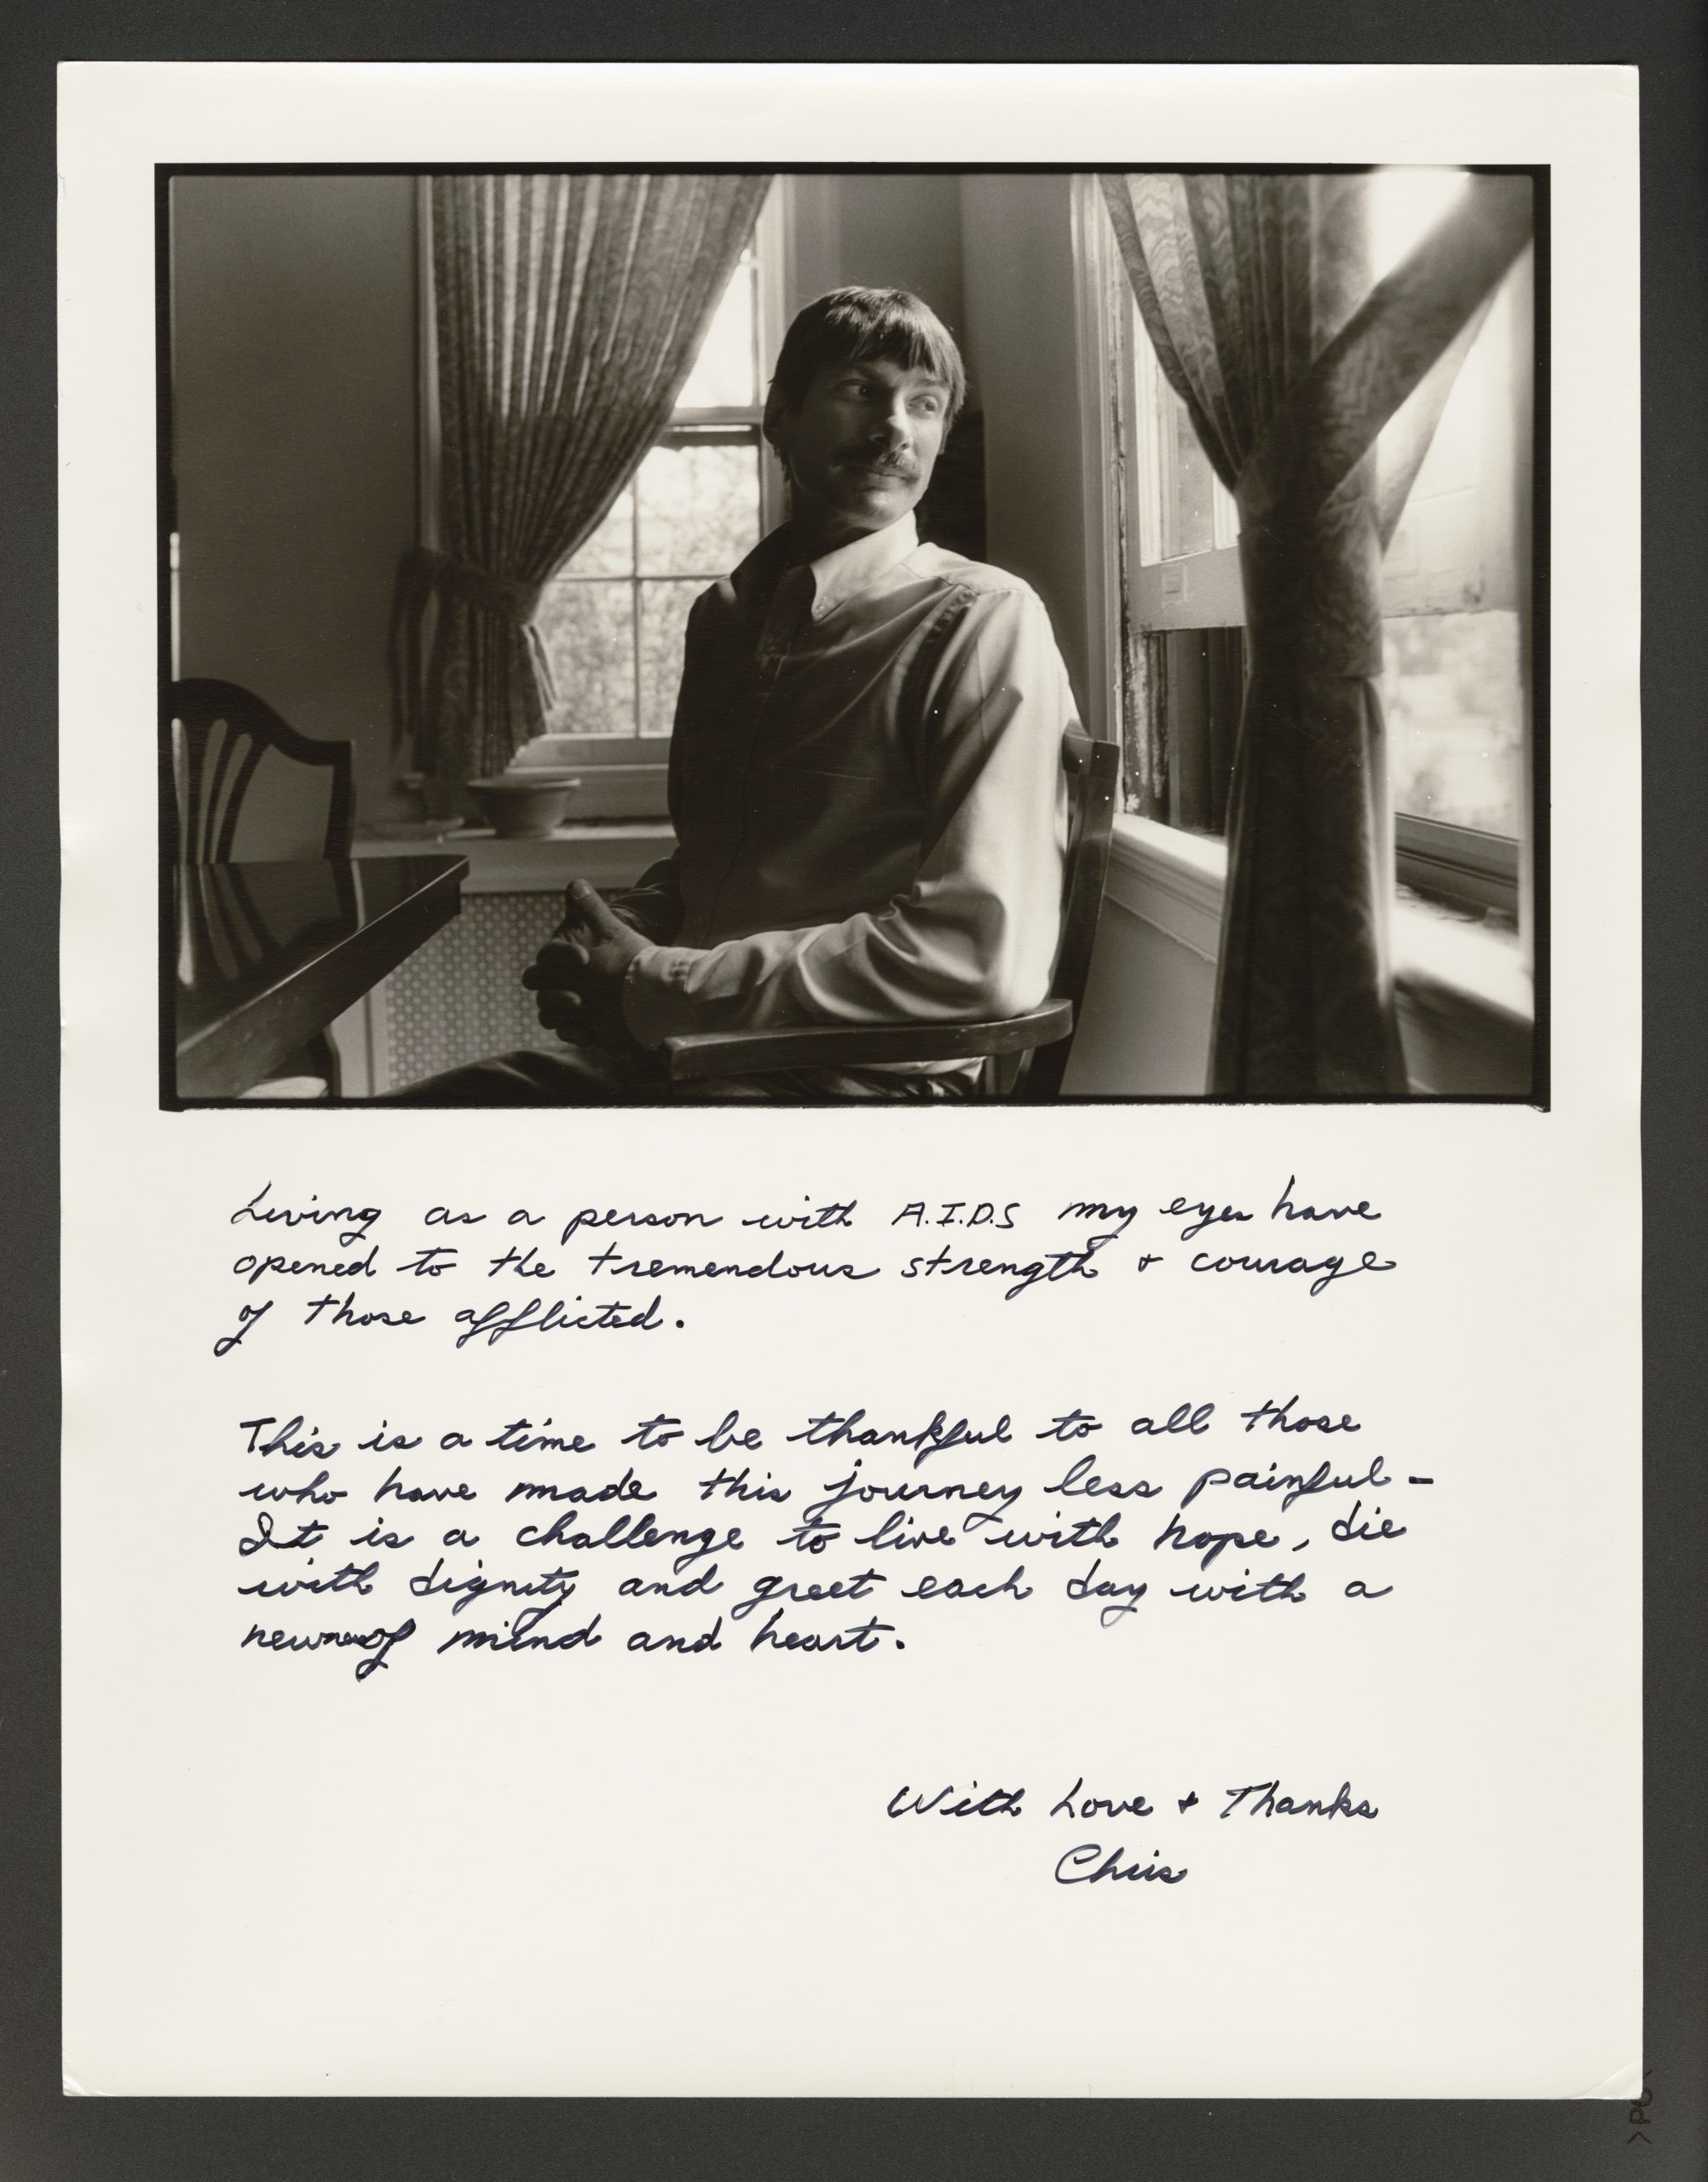 Living as a person with A.I.D.S my eyes have
opened to the tremendous strength + courage
of those afflicted.
This is a time to be thankful to all those
who have made this journey less painful -
It is a challenge to live with hope, die
with dignity and greet each day with a
mind and heart.
With Love + Thanks
Chris